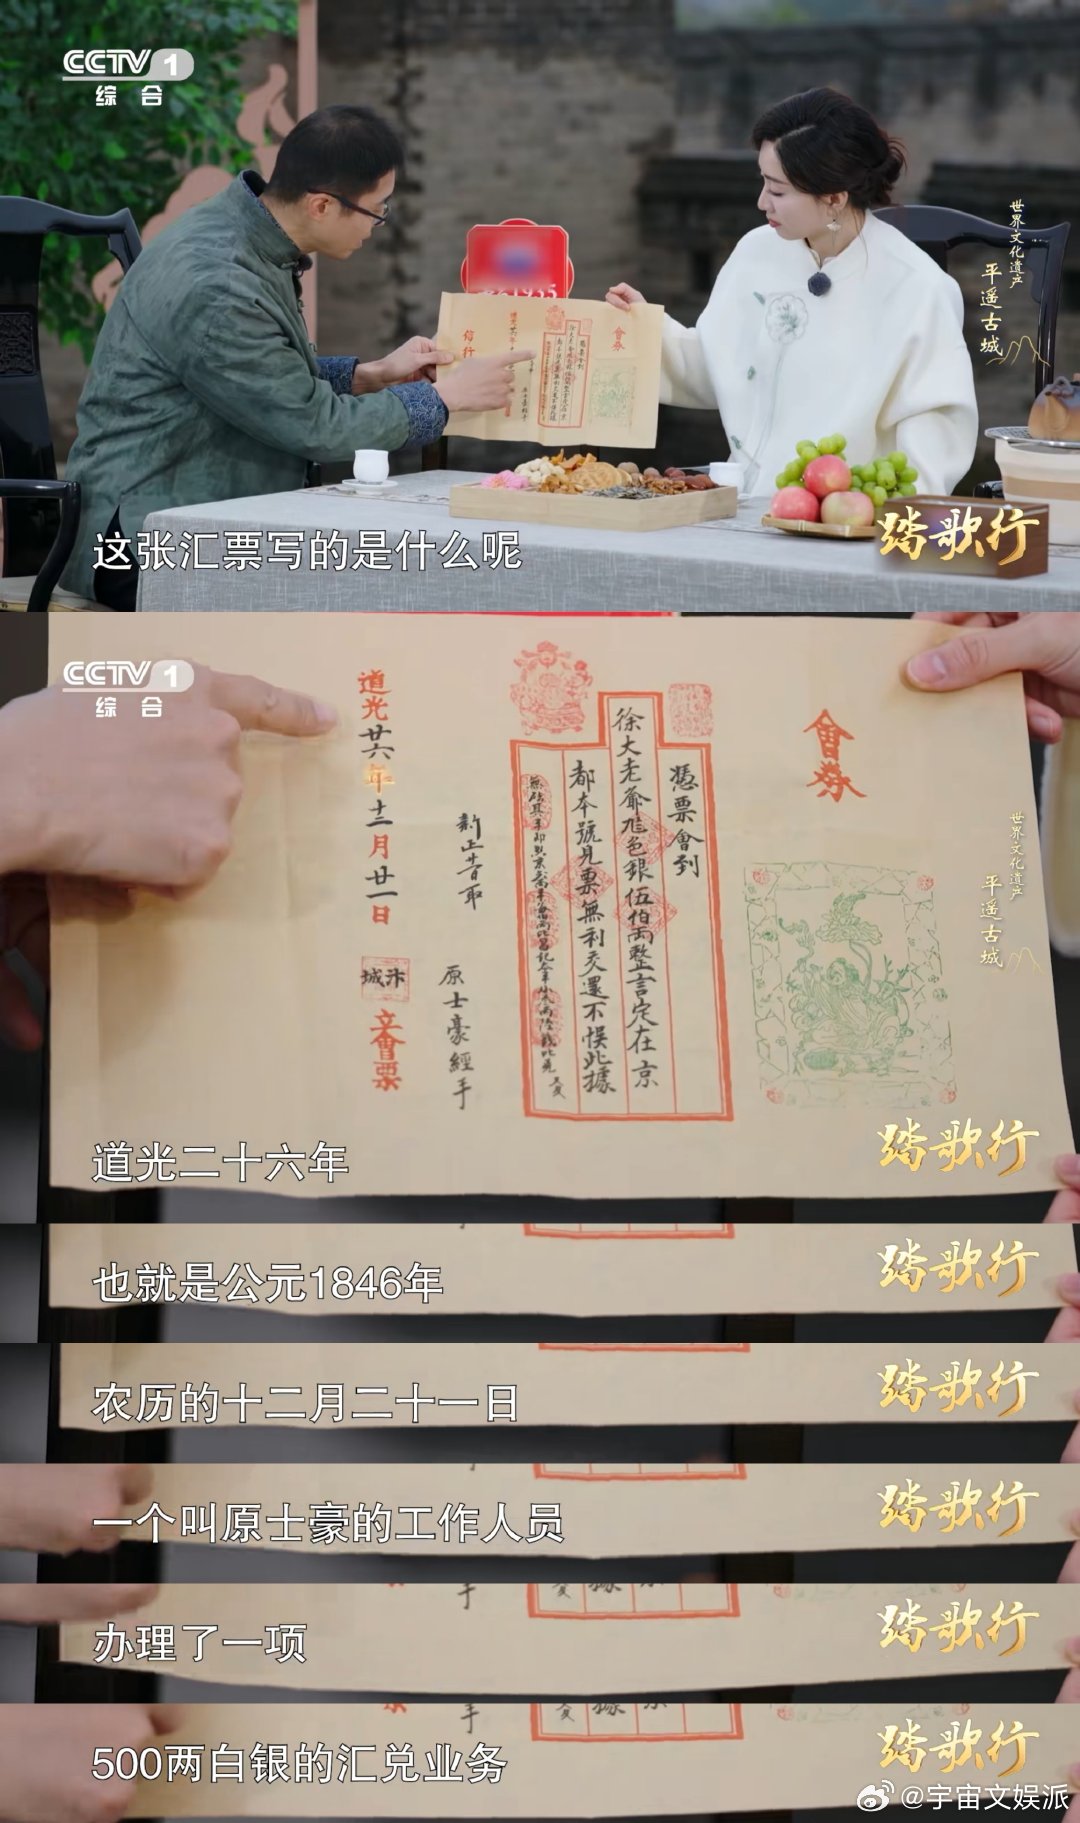 CCTV 1
综合
世界文化遗产
平遥古城
會券
信行
这张汇票写的是什么呢
踏歌行
CCTV 1
综合
會券
憑票會到
徐大老爺
色銀伍佰两整言定在京
都本號見票無利交還不悞此據
新正
取
原士豪經手
道光廿六年十二月廿一日
汴城
立會票
世界文化遗产
平遥古城
道光二十六年
踏歌行
也就是公元1846年
踏歌行
农历的十二月二十一日
踏歌行
一个叫原士豪的工作人员
踏歌行
办理了一项
踏歌行
500两白银的汇兑业务
踏歌行
@宇宙文娱派